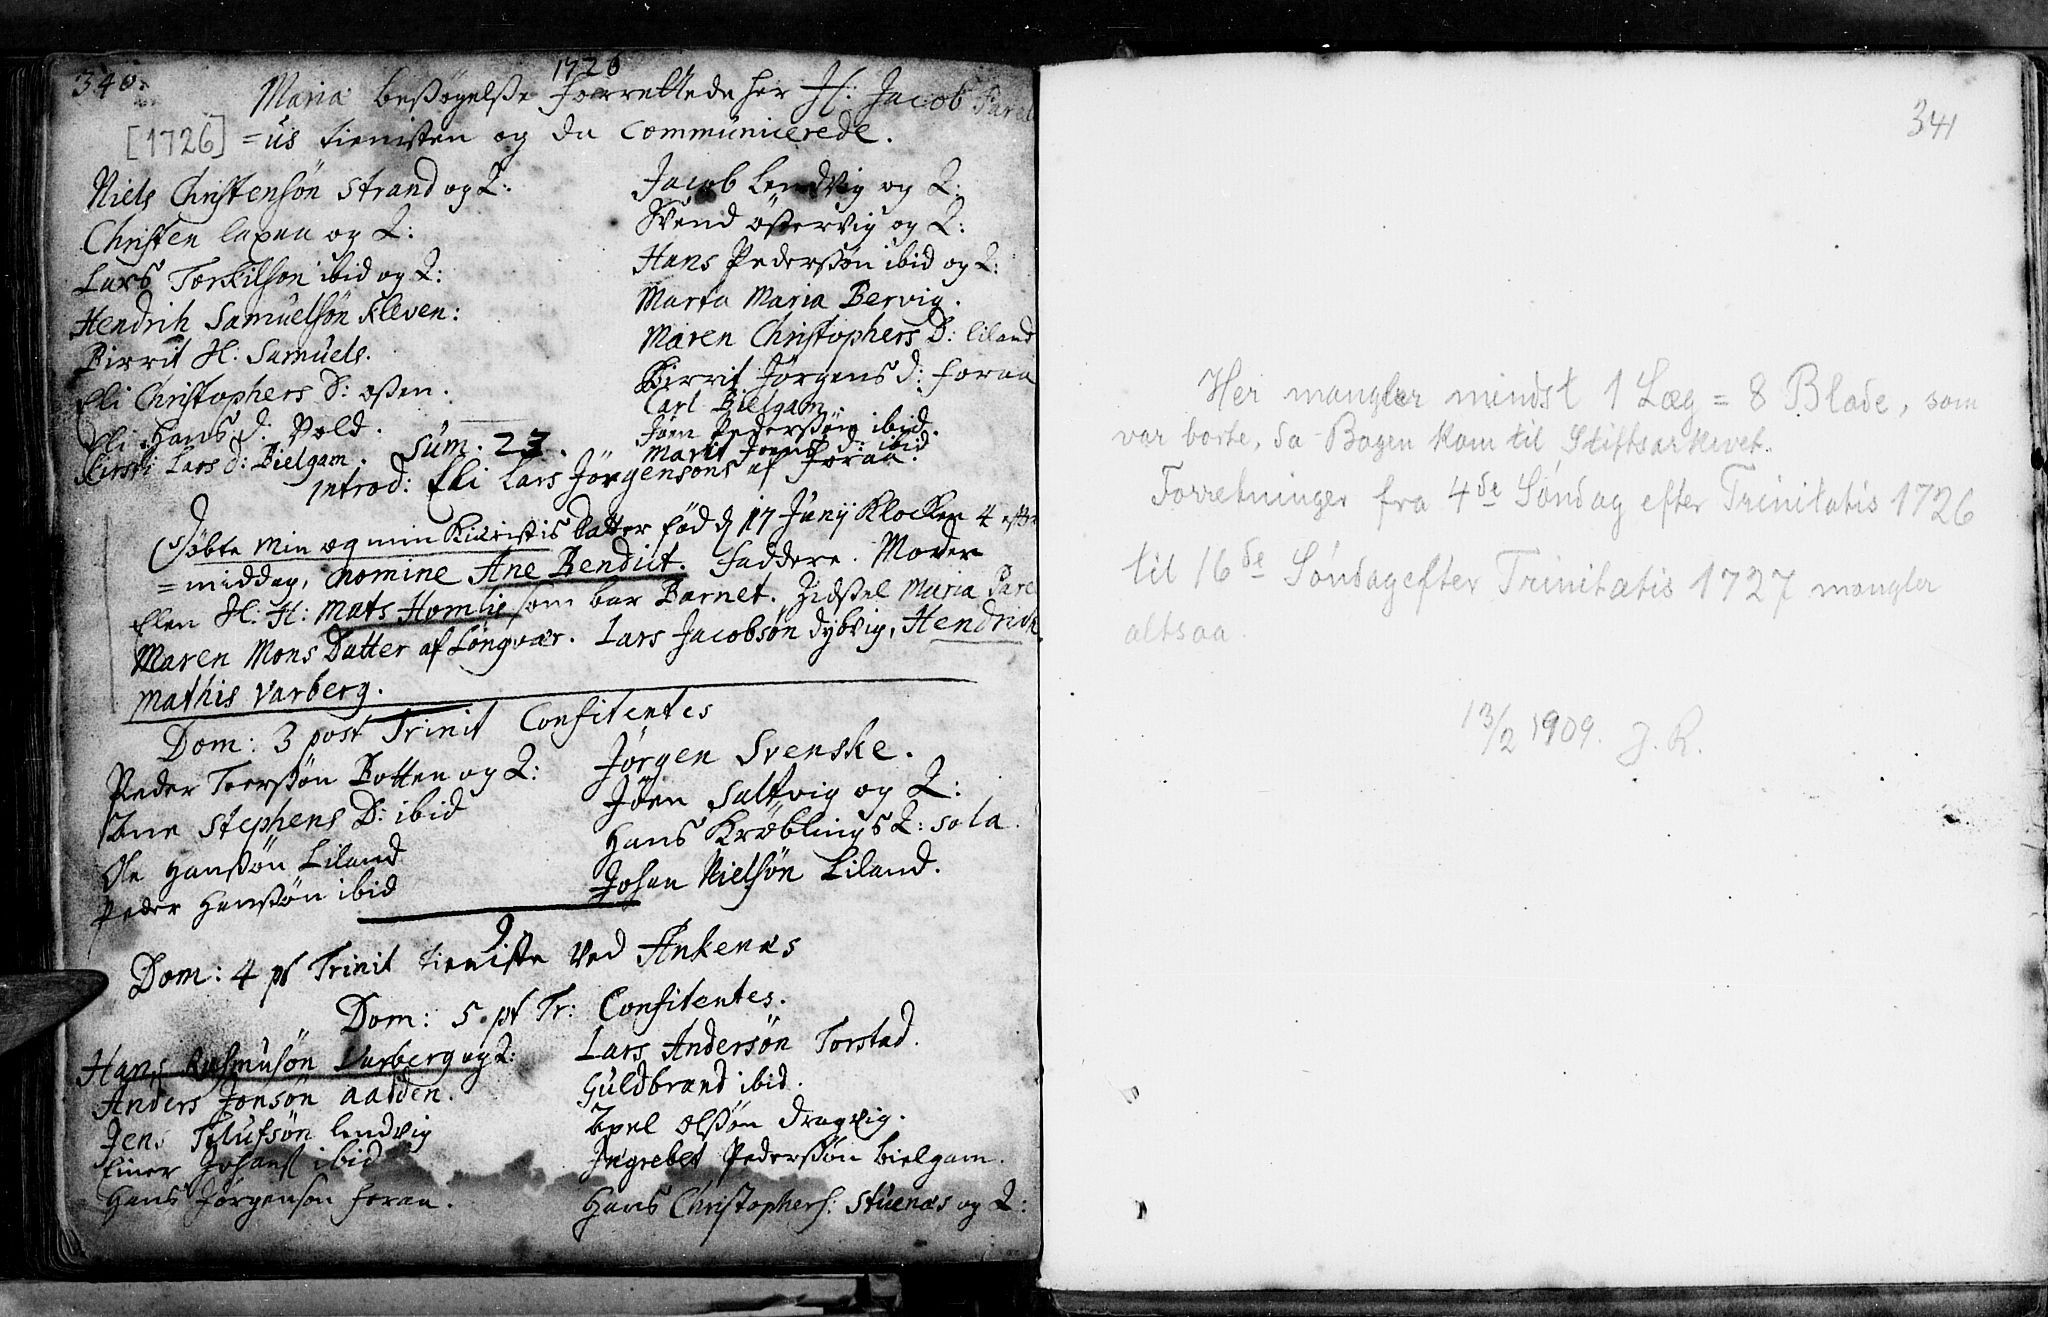 340.
1726
Maria besøgelse forrettede her H: Jacob Parel
[1726] =us tienisten og da Communicerede.
Niels Christensøn Strand og Q:
Christen lapaa og Q:
Lars Torkilsøn ibid og Q:
Hendrik Samuelsøn Kleven:
Birrit H: Samuels.
Eli Christophers D: osen.
Eli Hans D: Vold.
Kirsti Lars d: Bielgam.
Sum. 23.
Jacob lendvig og Q:
Svend østervig og Q:
Hans Pedersøn ibid og Q:
Marta Maria Bervig.
Maren Christophers D: liland
Birrit Jørgens d: foraa
Carl Bielgam.
Joen Pedersøn ibid.
Marit Joens d: ibid
Introd: Eli Lars Jørgensøns af Foraa.
Døbte min og min Kieristis datter fød d 17 Junij Klocken 4 efter
=middag, nomine Ane Bendict. Faddere. Moder
Ellen Sl. H: Mats Homlis som bar Barnet. Zidsel Maria Parel
Maren Mons Datter af Longvær. Lars Jacobsøn dybvig, Hendrich
Mathis Varberg.
Dom: 3 post Trinit Confitentes
Peder Toersøn Botten og Q:
Ane Stephens D: ibid
Ole Hansøn Liland
Peder Hansøn ibid
Jørgen Svenske.
Joen Saltvig og Q:
Hans Krøblings Q: sola.
Johan Nielsøn Liland.
Dom: 4 pt Trinit tieniste ved Ankenæs
Dom: 5 pt Tr: Confitentes.
Hans Rasmusøn Varberg og Q:
Anders Jonsøn aadden.
Jens Olufsøn lendvig
Einer Johans ibid
Hans Jørgenson foraa.
Lars Andersøn Torstad.
Guldbrand ibid.
Apel olsøn dragvig.
Ingrebet Pedersøn bielgam.
Hans Christophers: Stuenæs og Q:
341
Her mangler mindst 1 Læg = 8 Blade, som
var borte, da Bogen kom til Stiftsarkivet.
Forretninger fra 4de Søndag efter Trinitatis 1726
til 16de Søndag efter Trinitatis 1727 mangler
altsaa.
13/2 1909. J. R.